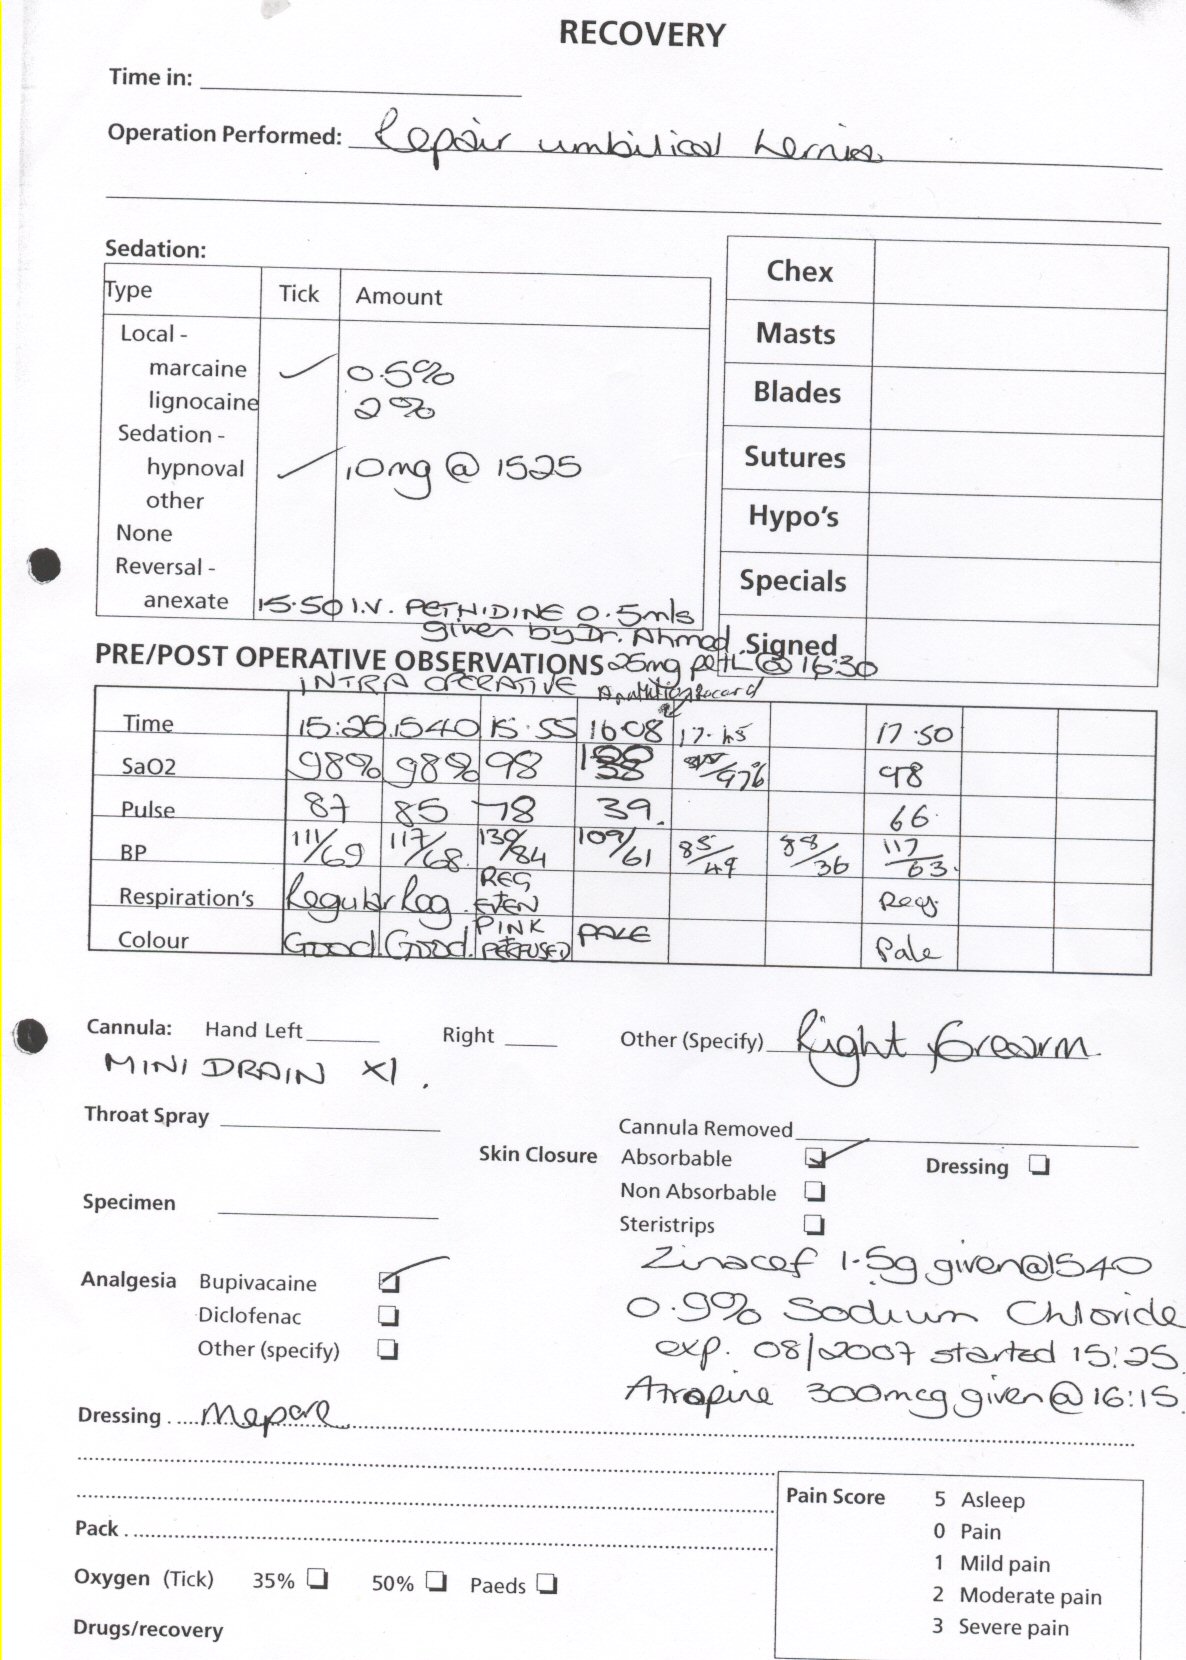 RECOVERY
Time in:
Operation Performed: Repair umbilical hernia
Sedation:
Type Tick Amount
Local -
marcaine ✓ 0.5%
lignocaine 2%
Sedation -
hypnoval ✓ 10mg @ 1525
other
None
Reversal -
anexate 15.50 I.V. PETHIDINE 0.5mls
given by Dr. Ahmed.
Chex
Masts
Blades
Sutures
Hypo's
Specials
Signed
PRE/POST OPERATIVE OBSERVATIONS 25mg peth @ 16:30
INTRA OPERATIVE
Time 15:25 1540 15.55 16.08 17.45 17.50
SaO2 98% 98% 98 97% 98
Pulse 87 85 78 39. 66
BP 111/69 117/68 130/84 109/61 85/49 88/36 117/63.
Respiration's Regular Reg. REG EVEN Reg.
Colour Good. Good. PINK + PERFUSED PALE Pale
Cannula: Hand Left Right Other (Specify) Right forearm.
MINI DRAIN X1.
Throat Spray
Cannula Removed
Skin Closure Absorbable ✓ Dressing
Non Absorbable
Steristrips
Specimen
Zinacef 1.5g given @ 1540
0.9% Sodium Chloride
exp. 08/2007 started 15:25.
Atropine 300mcg given @ 16:15.
Analgesia Bupivacaine ✓
Diclofenac
Other (specify)
Dressing Mepore
Pack
Oxygen (Tick) 35% 50% Paeds
Drugs/recovery
Pain Score 5 Asleep
0 Pain
1 Mild pain
2 Moderate pain
3 Severe pain